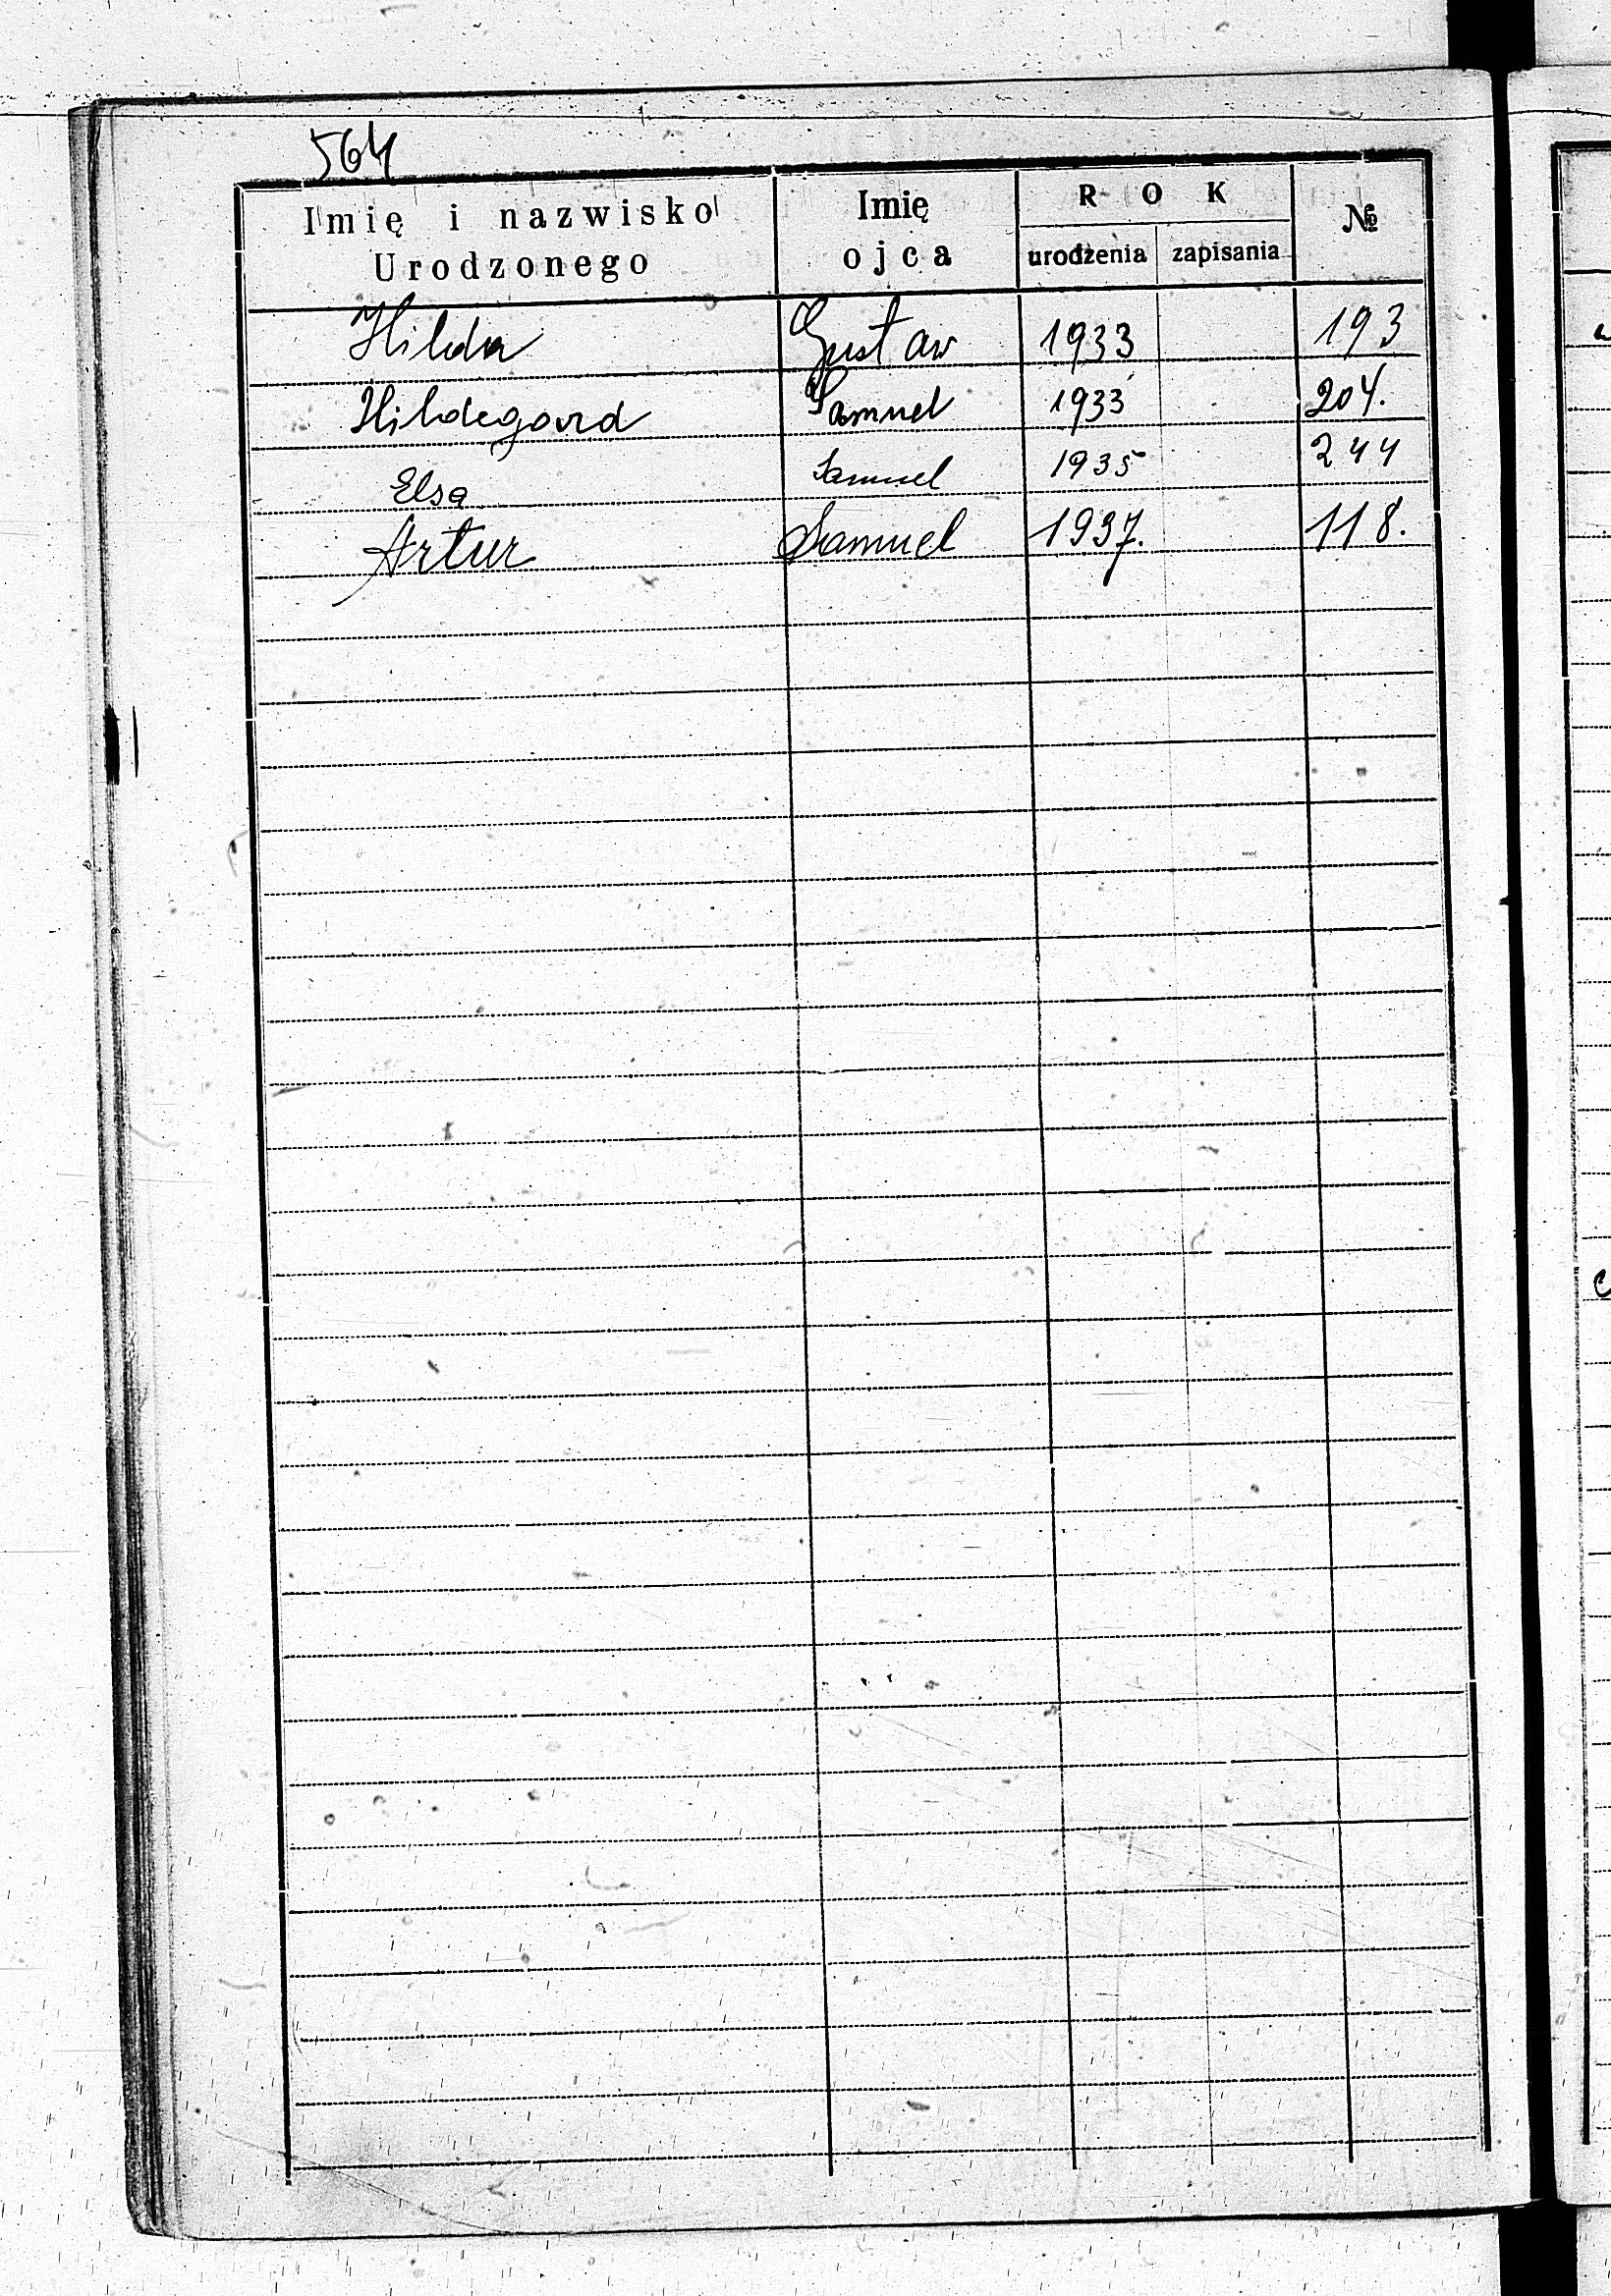 564
Imię i nazwisko Urodzonego Imię ojca ROK urodzenia zapisania №
Hilda Gustaw 1933 193
Hildegard Samuel 1933 204.
Elsa Samuel 1935 244
Artur Samuel 1937. 118.